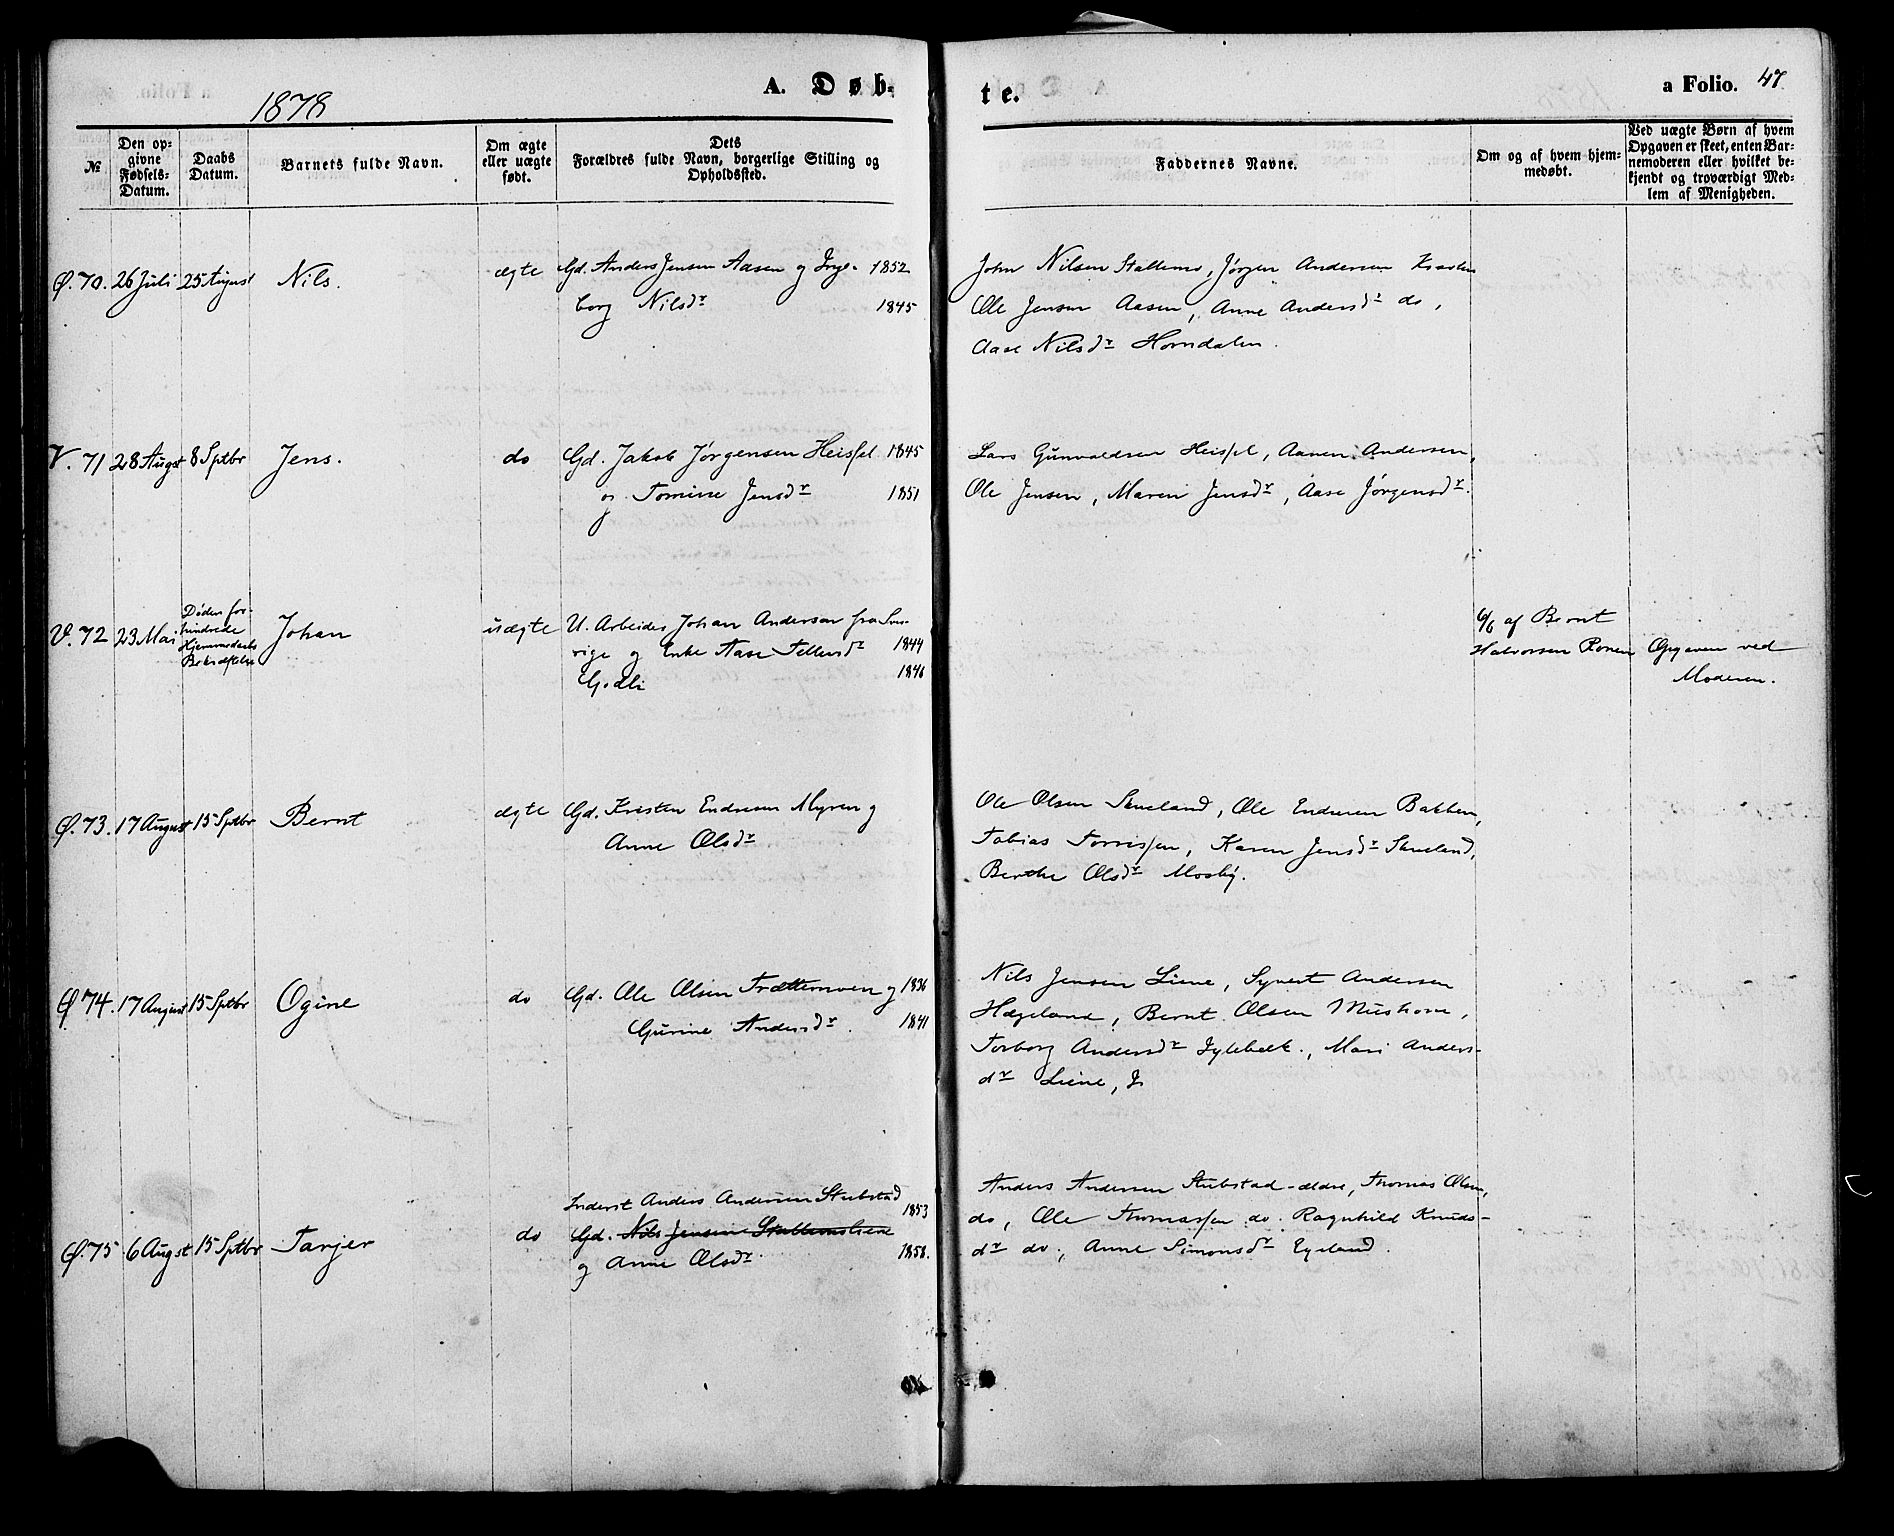 1878
A. Døb-
te.
a Folio. 47
№
Den op-
givne
Fødsels-
Datum.
Daabs
Datum.
Barnets fulde Navn.
Om ægte
eller uægte
født.
Dets
Forældres fulde Navn, borgerlige Stilling og
Opholdssted.
Faddernes Navne.
Om og af hvem hjem-
medøbt.
Ved uægte Børn af hvem
Opgaven er skeet, enten Bar-
nemoderen eller hvilket be-
kjendt og troværdigt Med-
lem af Menigheden.
Ø. 70. 26 Juli 25 August Nils. ægte Gd. Anders Jensen Aasen og Inge- 1852
borg Nilsdr 1845
John Nilsen Stallemo, Jørgen Andersen
Ole Jensen Aasen, Anne Andersdr do,
Aase Nilsdr Homdalen.
V. 71 28 Augst 8 Sptbr Jens. do Gd. Jakob Jørgensen Heissel 1845
og Tomine Jensdr 1851
Lars Gunvaldsen Heissel, Aanen Andersen,
Ole Jensen, Maren Jensdr, Aase Jørgensdr.
V. 72 23 Mai
Døden for-
hindrede
Hjemmedaabs
Bekræftelse
Johan uægte U. Arbeider Johan Anderson fra Sve-
rige og Enke Aase Tellefsdr 1844
Godli 1846
6/6 af Bernt
Halvorsen Roven
Opgaven ved
Moderen.
Ø. 73. 17 August 15 Sptbr Bernt ægte Gd. Kristen Endresen Myren og
Anne Olsdr
Ole Olsen Skueland, Ole Endresen Bakken,
Tobias Torrissen, Karen Jensdr Skueland,
Berthe Olsdr Mosby.
Ø. 74. 17 August 15 Sptbr Ogine do Gd. Ole Olsen Trættemoen og 1836
Gurine Andersdr. 1841
Nils Jensen Liene, Syvert Andersen
Hægeland, Bernt Olsen Mushom,
Torborg Andersdr, Mari Anders-
dr Liene,
Ø. 75 6 Augst 15 Sptbr Tarjer do
Inderst Anders Andersen Stubstad 1853
Gd. Nils Jensen Stallemo Liene
og Anne Olsdr. 1858.
Anders Andersen Stubstad ældre, Thomas Olsen
do, Ole Thomassen do. Ragnhild Knuds-
dr do., Anne Simonsdr Eyeland.